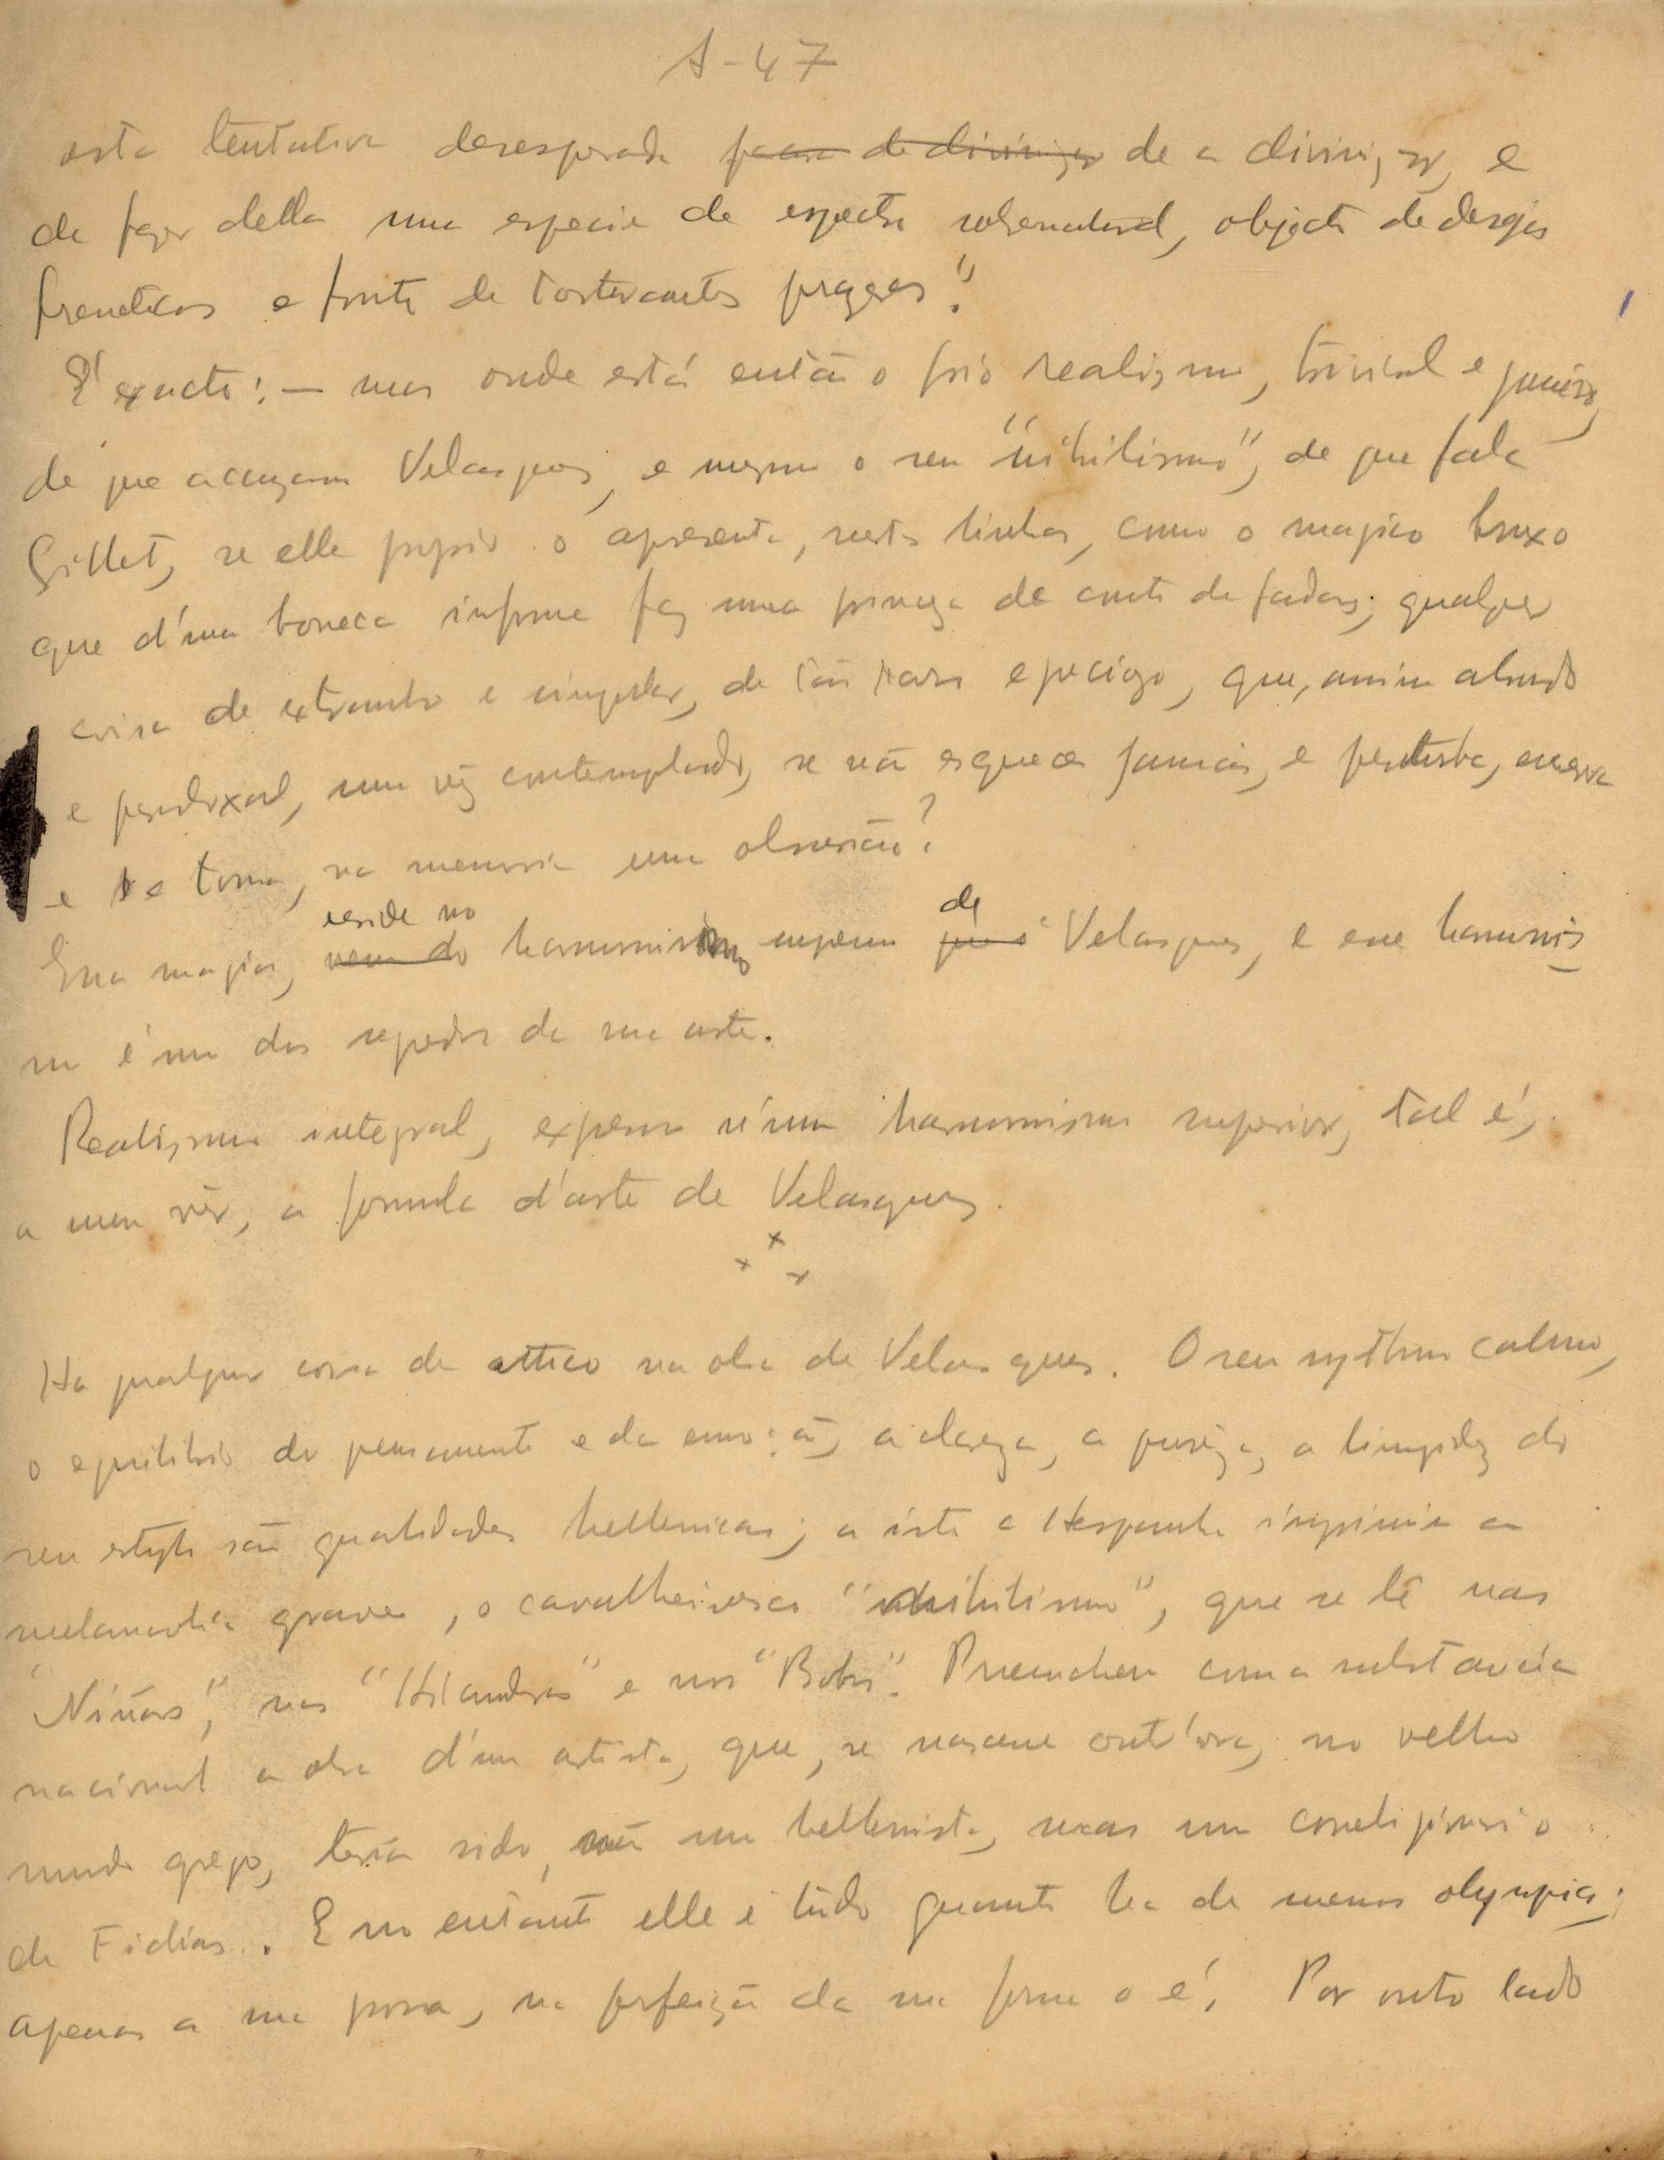 A-47
esta tentativa desesperada para de divinizar de a divinizar, e
de fazer della uma especie de espectro sobrenatural, objecto de desejos
freneticos e fonte de torturantes prazeres".
É exacto: — mas onde está então o frio realismo, trivial e
de que accuzam Velasquez, e mesmo o seu "nihilismo", de que fala
Gillet, se elle proprio o apresenta, nestas linhas, como o magico bruxo
que d'uma boneca informe faz uma princeza de conto de fadas; qualquer
coisa de extranho e singular, de tão raro e precioso, que, assim absurdo
e paradoxal, uma vez contemplado, se não esquece jamais, e perturba, enerva
e se torna, na memoria uma obsessão?
reside no de
Essa magia, vem do harmonismo supremo Velasquez, e esse harmonis
mo é um dos segredos da sua arte.
Realismo integral, expresso n'um harmonismo superior, tal é,
a meu vêr, a formula d'arte de Velasquez.
x x x
Ha qualquer coisa de attico na obra de Velasquez. O seu rythmo calmo,
o equilibrio do pensamento e da emoção, a clareza, a pureza, a limpidez do
seu estylo são qualidades hellenicas; a isto a Hespanha imprimia a
melancolia grave, o cavalheiresco "nihilismo", que se lê nas
"Niñas", nas "Hilanderas" e nos "Bobos". Preencheu com a substancia
nacional a obra d'um artista, que, se nascesse outr'ora, no velho
mundo grego, teria sido, não um hellenista, mas um correligionario
de Fidias. E no entanto elle é tudo quanto ha de menos olympico;
apenas a sua prosa, na perfeição da sua forma o é. Por outro lado